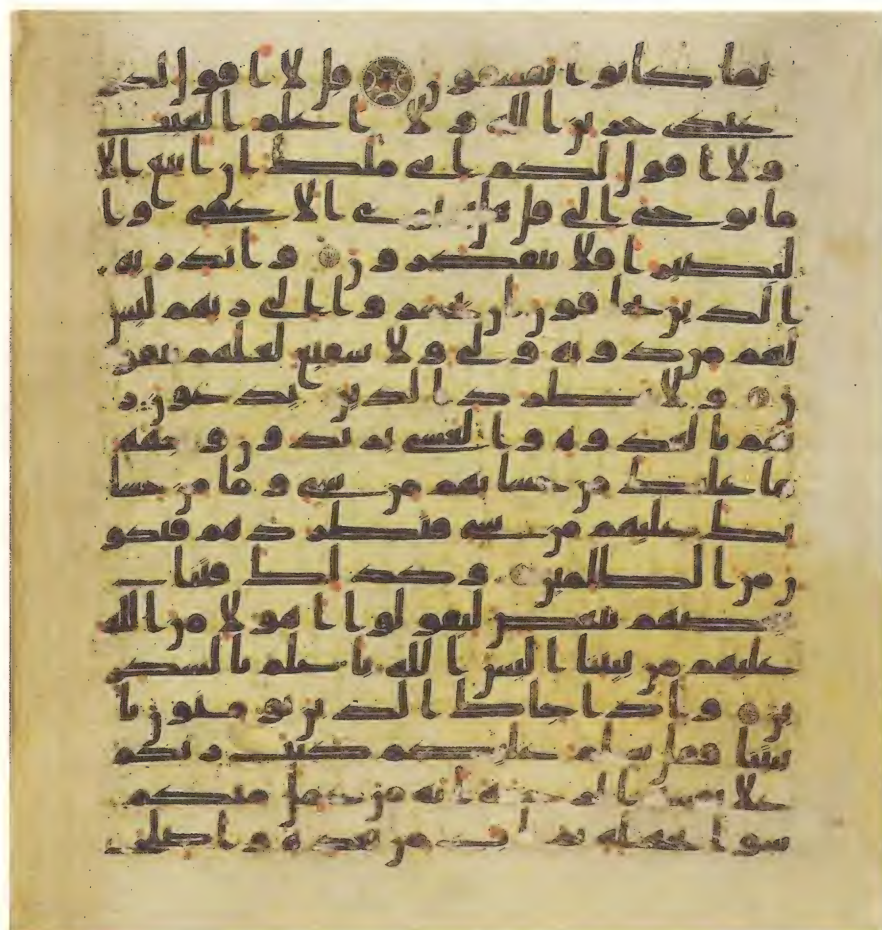 بما كانوا يفسقون قل لا اقول لكم
عندي خزين الله ولا اعلم الغيب
ولا اقول لكم اني ملك ان اتبع الا
ما يوحى الي قل هل يستوي الاعمى وا
لبصير افلا تتفكرون وانذر به
الذين يخافون ان يحشروا الى ربهم ليس
لهم من دونه ولي ولا شفيع لعلهم يتقو
ن ولا تطرد الذين يدعون ر
بهم بالغدوة والعشي يريدون وجهه
ما عليك من حسابهم من شي وما من حسا
بك عليهم من شي فتطردهم فتكو
ن من الظلمين وكذلك فتنا
بعضهم ببعض ليقولوا اهولا من الله
عليهم من بيننا اليس الله باعلم بالشكر
ين واذا جاك الذين يومنون با
يتنا فقل سلم عليكم كتب ربكم
على نفسه الرحمة انه من عمل منكم
سوا بجهلة ثم تاب من بعده واصلح